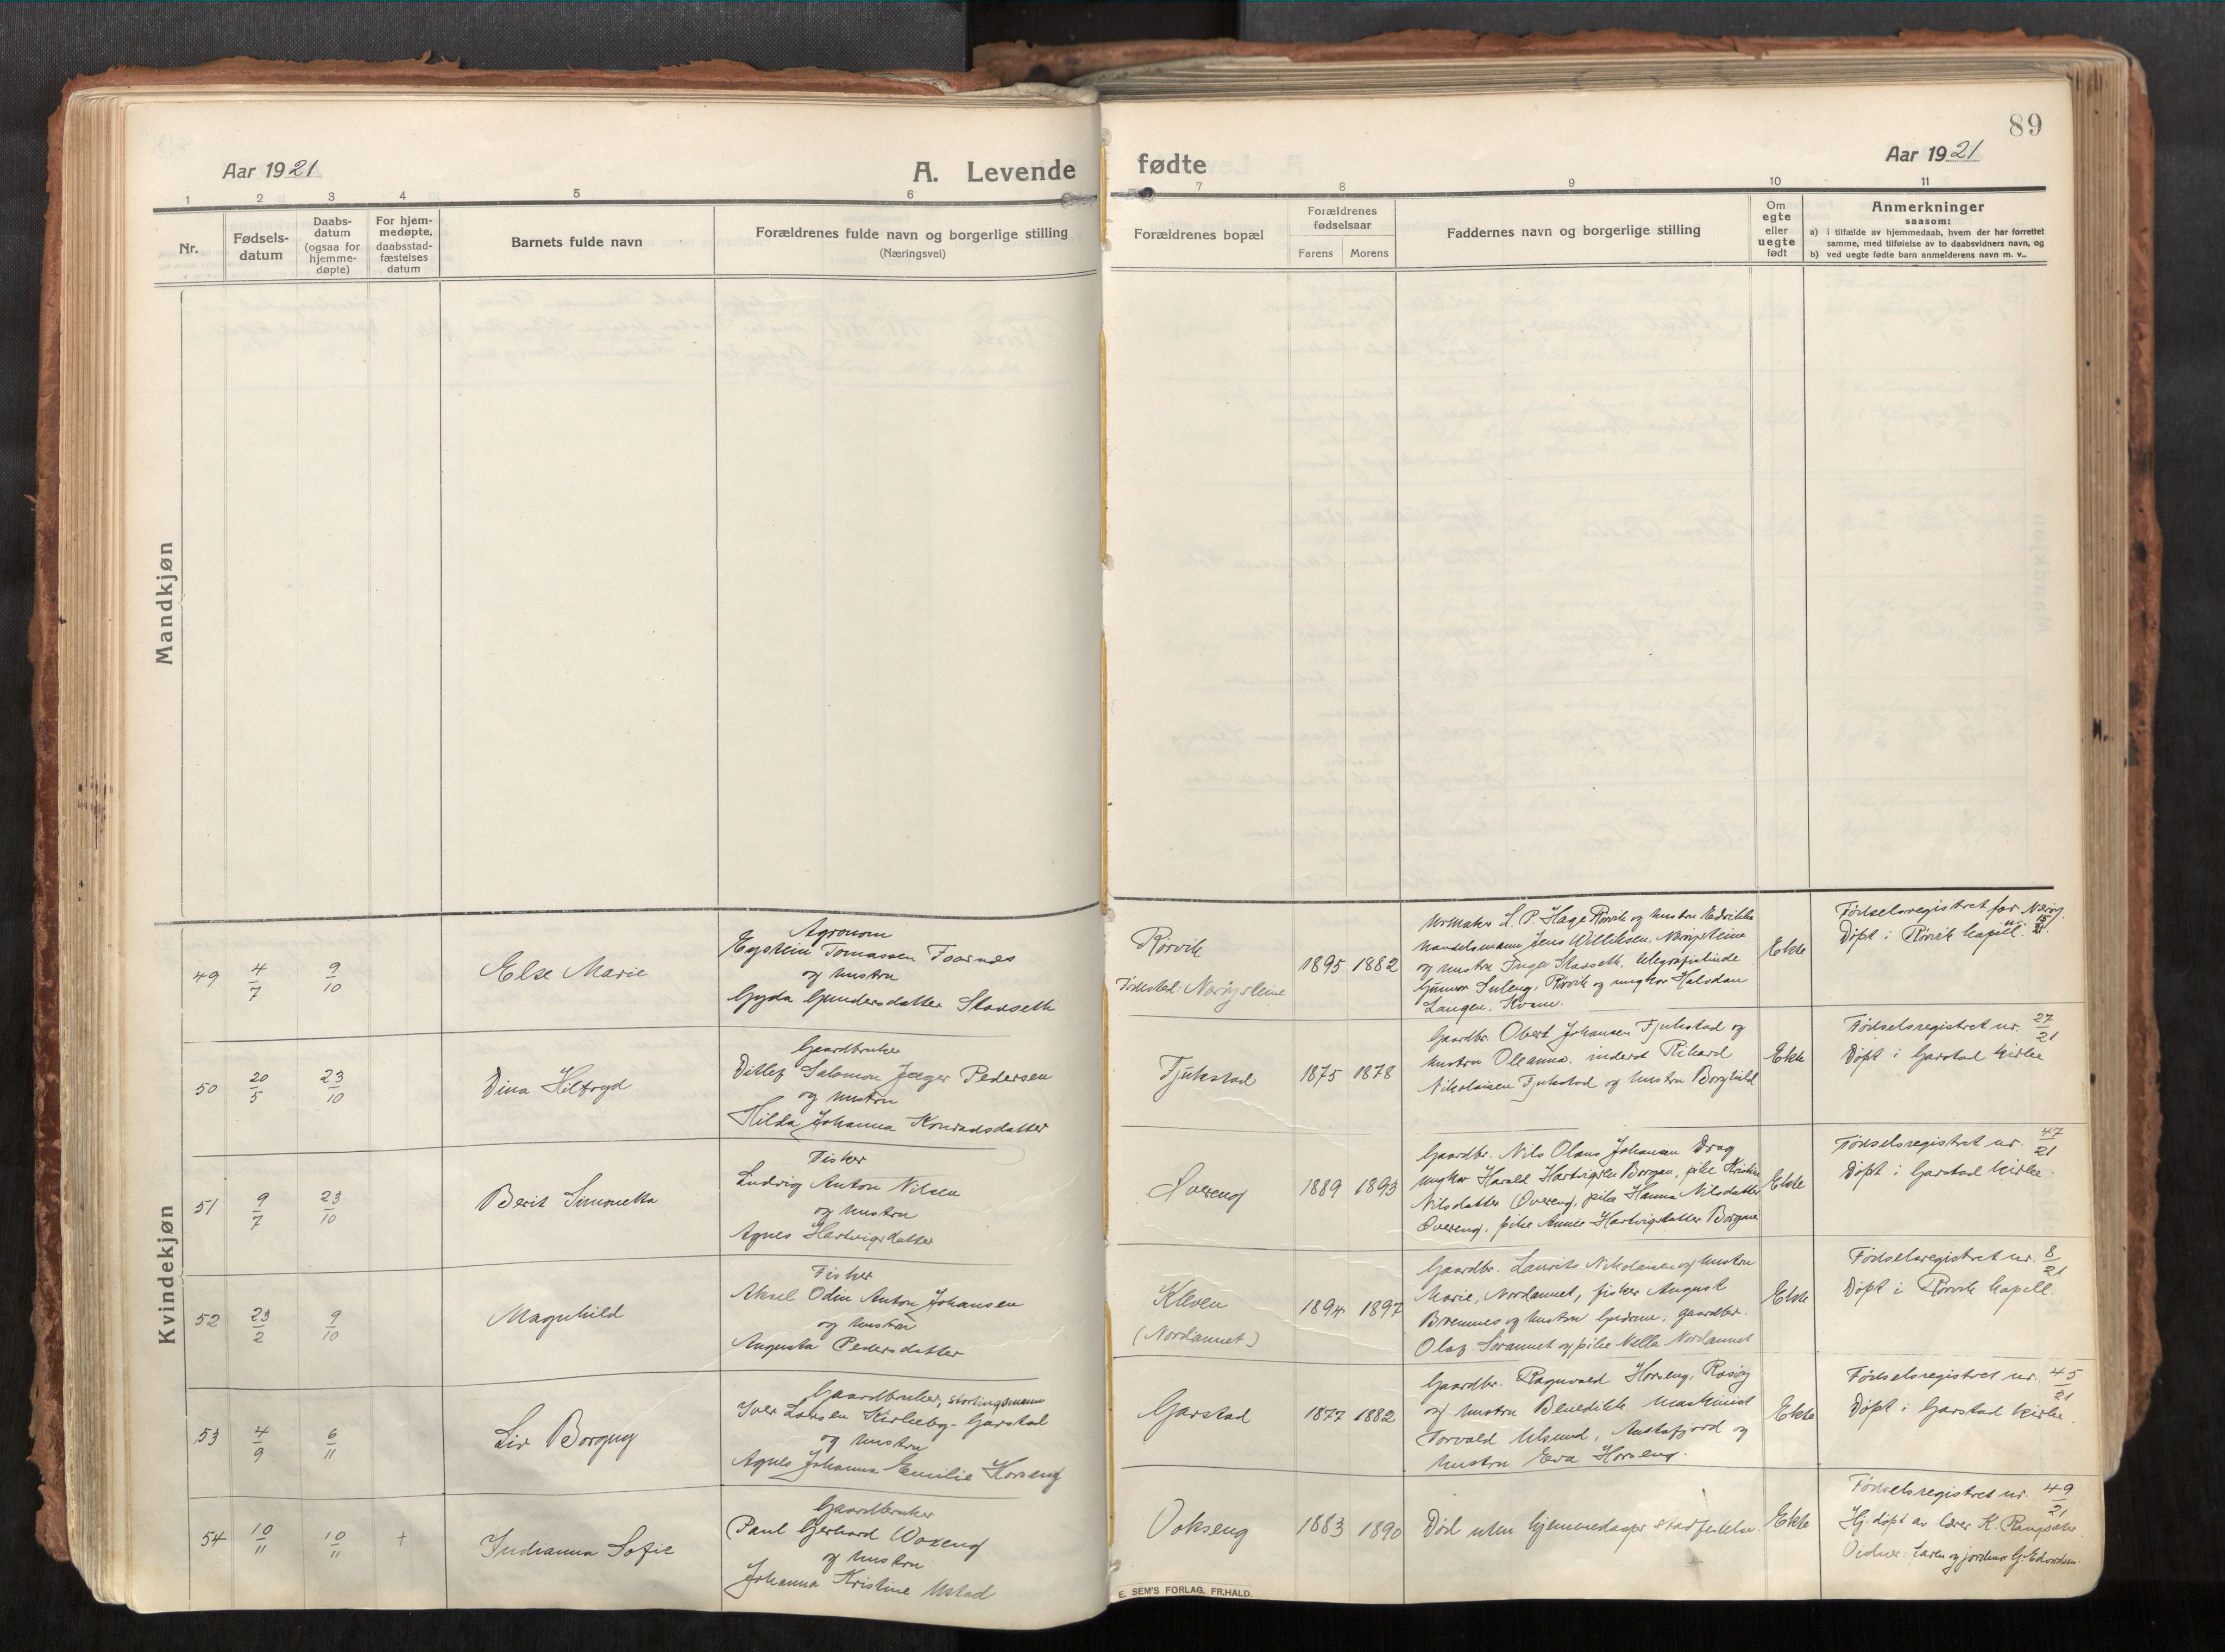 89
Aar 1921
A. Levende
fødte
Aar 1921
1 2 3 4 5 6 7 8 9 10 11
Nr.
Fødsels-
datum
Daabs-
datum
(ogsaa for
hjemme-
døpte)
For hjem-
medøpte,
daabsstad-
fæstelses
datum
Barnets fulde navn
Forældrenes fulde navn og borgerlige stilling
(Næringsvei)
Forældrenes bopæl
Forældrenes
fødselsaar
Farens Morens
Faddernes navn og borgerlige stilling
Om
egte
eller
uegte
født
Anmerkninger
saasom:
a) i tilfælde av hjemmedaab, hvem der har forrettet
samme, med tilføielse av to daabsvidners navn, og
b) ved uegte fødte barn anmelderens navn m. v..
Mandkjøn
Kvindekjøn
49 4/7 9/10
Else Marie
Agronom
Eystein Tomassen Foornæs
og hustru
Gyda Gundersdatter Stavseth
Rørvik
Fødested: Nærøysteine
1895 1882
Urmaker L. P. Hage Rørvik og hustru Edrikke
handelsmann Jens Williksen, Nærøysteine
og hustru Inga Stavseth, telegrafistinde
Gunvor Suleng, Rørvik og ungkar Halvdan
Langen, Kvam.
Ekte
Fødselsregistret for Nærøy
nr. 15/21.
Døpt i Rørvik kapell.
50 20/5 23/10
Dina Hilfryd
Gaardbruker
Ditlef Salomon Jæger Pedersen
og hustru
Hilda Johanna Konradsdatter
Fjukstad
1875 1878
Gaardbr. Obert Johansen Fjukstad og
hustru Oleanna, inderst Rikard
Nikolaisen Fjukstad og hustru Borghild
Ekte
Fødselsregistret nr. 27/21
Døpt i Garstad kirke
51 9/7 23/10
Berit Simonetta
Fisker
Ludvig Anton Nilsen
og hustru
Agnes Hartvigsdatter
Øvereng
1889 1893
Gaardbr. Nils Olaus Johansen Drag
ungkar Harald Hartvigsen Borgan, pike Kristine
Nilsdatter Øvereng, pike Hanna Nilsdatter
Øvereng, pike Anna Hartvigsdatter Borgan
Ekte
Fødselsregistret nr. 47/21
Døpt i Garstad kirke.
52 23/2 9/10
Magnhild
Fisker
Aksel Odin Anton Johansen
og hustru
Augusta Pedersdatter
Kleven
(Nordaunet)
1894 1897
Gaardbr. Laurits Nikolaisen og hustru
Marie, Nordaunet, fisker August
Bremnes og hustru Gudrun, gaardbr.
Olaf Søraunet og pike Nella Nordaunet
Ekte
Fødselsregistret nr. 8/21
Døpt i Rørvik kapell.
53 4/9 6/11
Liv Borgny
Gaardbruker, stortingsmann
Iver Larsen Kirkeby-Garstad
og hustru
Agnes Johanna Emilie Horseng
Garstad
1877 1882
Gaardbr. Ragnvald Horseng, Rosøy
og hustru Benedikte. Maskinist
Torvald Ulsund, Austafjord og
hustru Eva Horseng.
Ekte
Fødselsregistret nr. 45/21
Døpt i Garstad kirke.
54 10/11 10/11 +
Indianna Sofie
Gaardbruker
Paul Gerhard Woxeng
og hustru
Johanna Kristine Ustad
Vokseng
1883 1890
Død uten hjemmedaaps stadfestelse.
Ekte
Fødselsregistret nr. 49/21
Hj. døpt av lærer K. Rangsæter.
Vidner: faren og jordmor G. Edvardsen.
E. SEM'S FORLAG, FR.HALD.